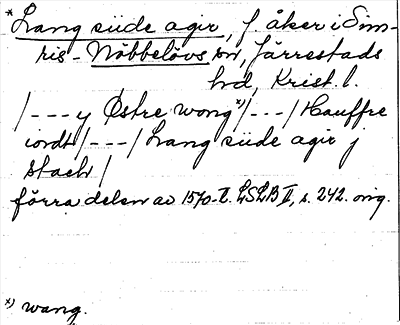 * Lang siide agir, f åker i Sim-
ris-Nöbbelövs sn, Järrestads
hd, Krist. l.
/---y Østre wong*)/---/Hauffre
iordt/---/Lang siide agir j
stach/
förra delen av 1570-t. LSLB II, s. 242. orig.
*) wang.